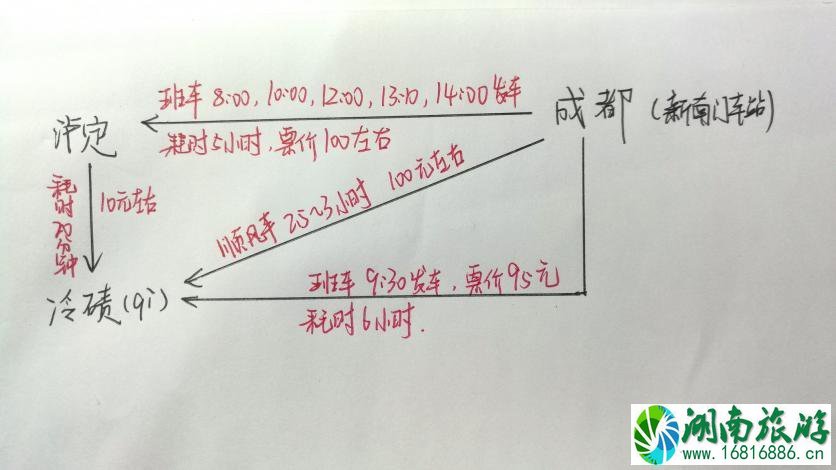 班车 8:00, 10:00, 12:00, 13:10, 14:00发车
成都 (新南门车站)
泸定
耗时5小时, 票价100左右
耗时20分钟
10元左右
顺风车 2.5~3小时 100元左右
冷碛(qi)
班车 9:30发车, 票价95元
耗时6小时.
湖南旅游
www.16816886.cn